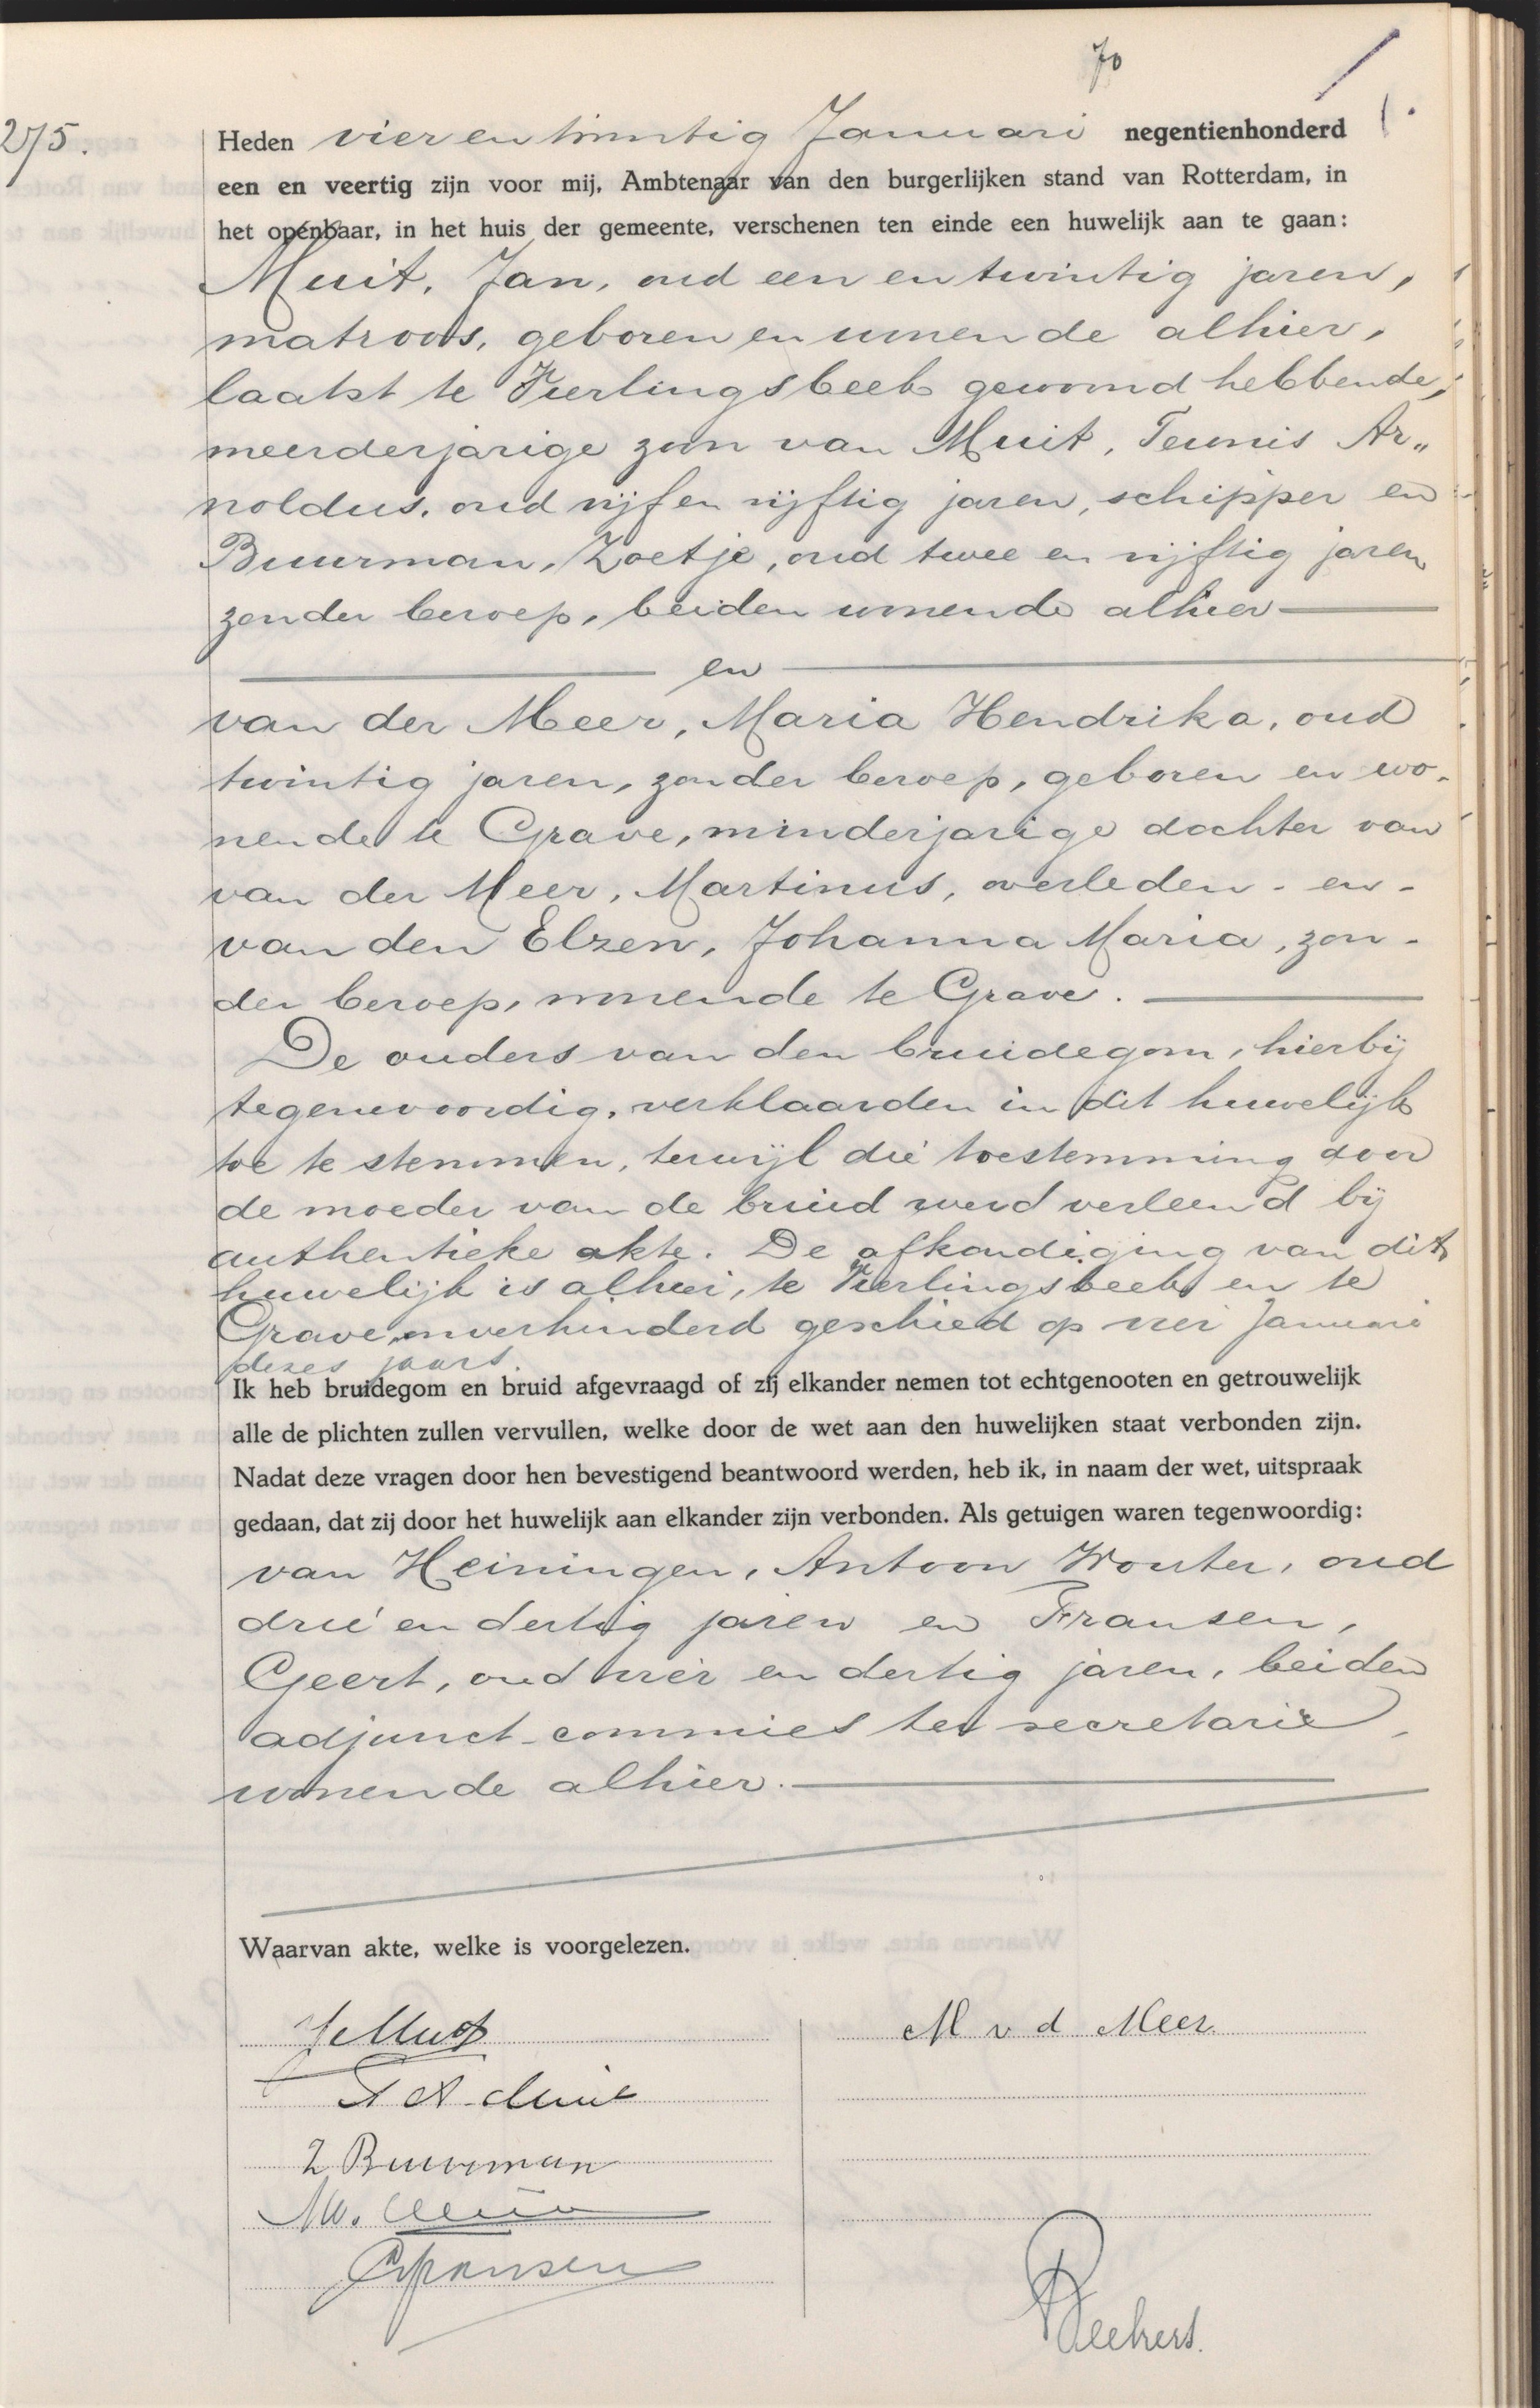 70
275.
Heden vier en twintig Januari negentienhonderd
een en veertig zijn voor mij, Ambtenaar van den burgerlijken stand van Rotterdam, in
het openbaar, in het huis der gemeente, verschenen ten einde een huwelijk aan te gaan:
Muit, Jan, oud een en twintig jaren,
matroos, geboren en wonende alhier,
laatst te Vierlingsbeek gewoond hebbende,
meerderjarige zoon van Muit, Teunis Ar„
noldus, oud vijf en vijftig jaren, schipper en
Buurman, Zoetje, oud twee en vijftig jaren
zonder beroep, beiden wonende alhier
en
van der Meer, Maria Hendrika, oud
twintig jaren, zonder beroep, geboren en wo-
nende te Grave, minderjarige dochter van
van der Meer, Martinus, overleden - en -
van den Elzen, Johanna Maria, zon-
der beroep, wonende te Grave.
De ouders van den bruidegom, hierbij
tegenwoordig, verklaarden in dit huwelijk
toe te stemmen, terwijl die toestemming door
de moeder van de bruid werd verleend bij
authentieke akte. De afkondiging van dit
huwelijk is alhier, te Vierlingsbeek en te
Grave, onverhinderd geschied op vier Januari
dezes jaars.
Ik heb bruidegom en bruid afgevraagd of zij elkander nemen tot echtgenooten en getrouwelijk
alle de plichten zullen vervullen, welke door de wet aan den huwelijken staat verbonden zijn.
Nadat deze vragen door hen bevestigend beantwoord werden, heb ik, in naam der wet, uitspraak
gedaan, dat zij door het huwelijk aan elkander zijn verbonden. Als getuigen waren tegenwoordig:
van Heiningen, Antoon Wouter, oud
drie en dertig jaren en Fransen,
Geert, oud vier en dertig jaren, beiden
adjunct-commies ter secretarie,
wonende alhier.
Waarvan akte, welke is voorgelezen.
J Muit
M v d Meer
T A Muit
Z Buurman
GFransen